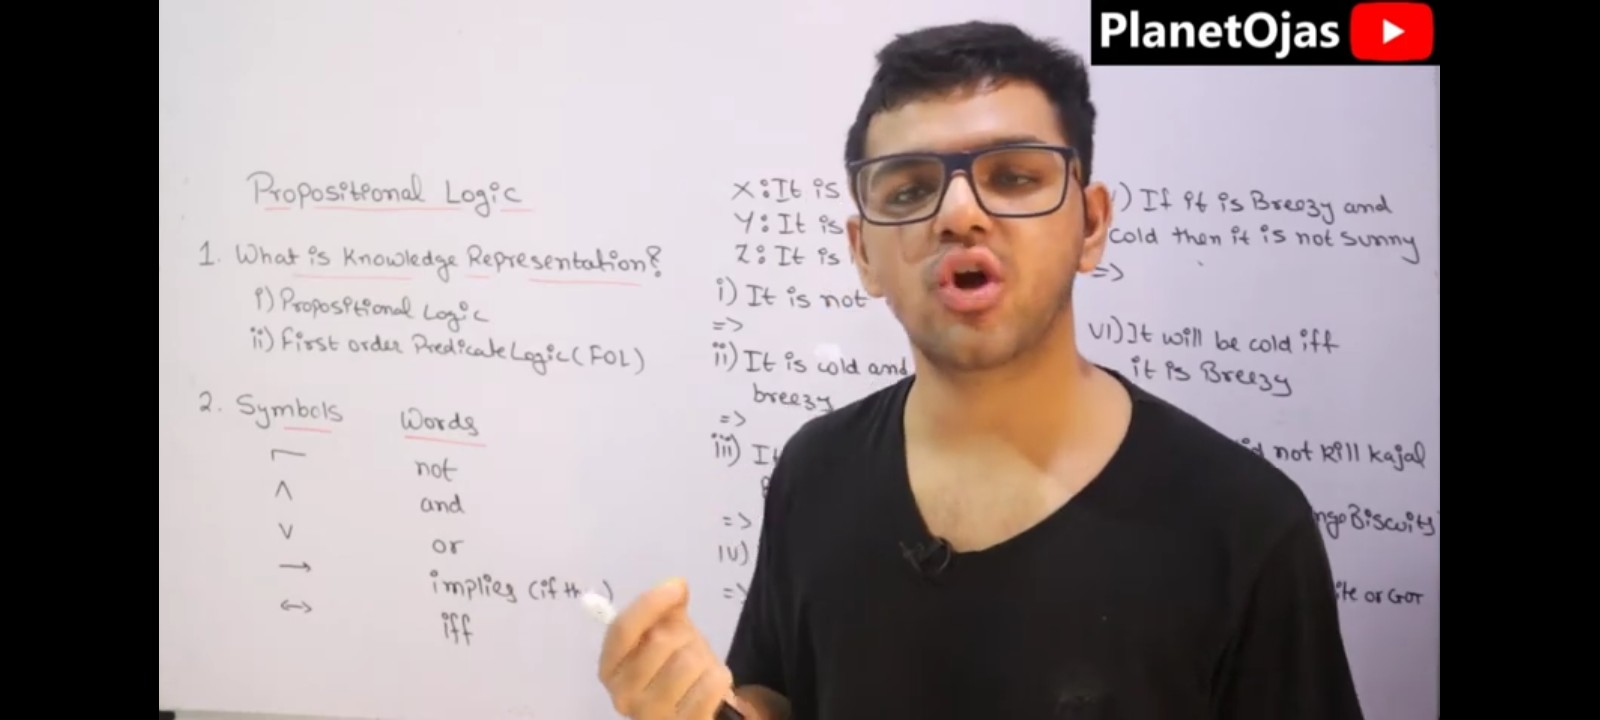 PlanetOjas
Propositional Logic
1. What is Knowledge Representation?
i) Propositional Logic
ii) First order Predicate Logic (FOL)
2. Symbols Words
¬ not
∧ and
∨ or
→ implies (if
↔ iff
X: It is
Y: It is
Z: It is
i) It is not
=>
ii) It is cold and
breezy
=>
iii) It
=>
iv)
=>
) If it is Breezy and
cold then it is not sunny
=>
vi) It will be cold iff
it is Breezy
not kill kajal
Biscuits
or GOT